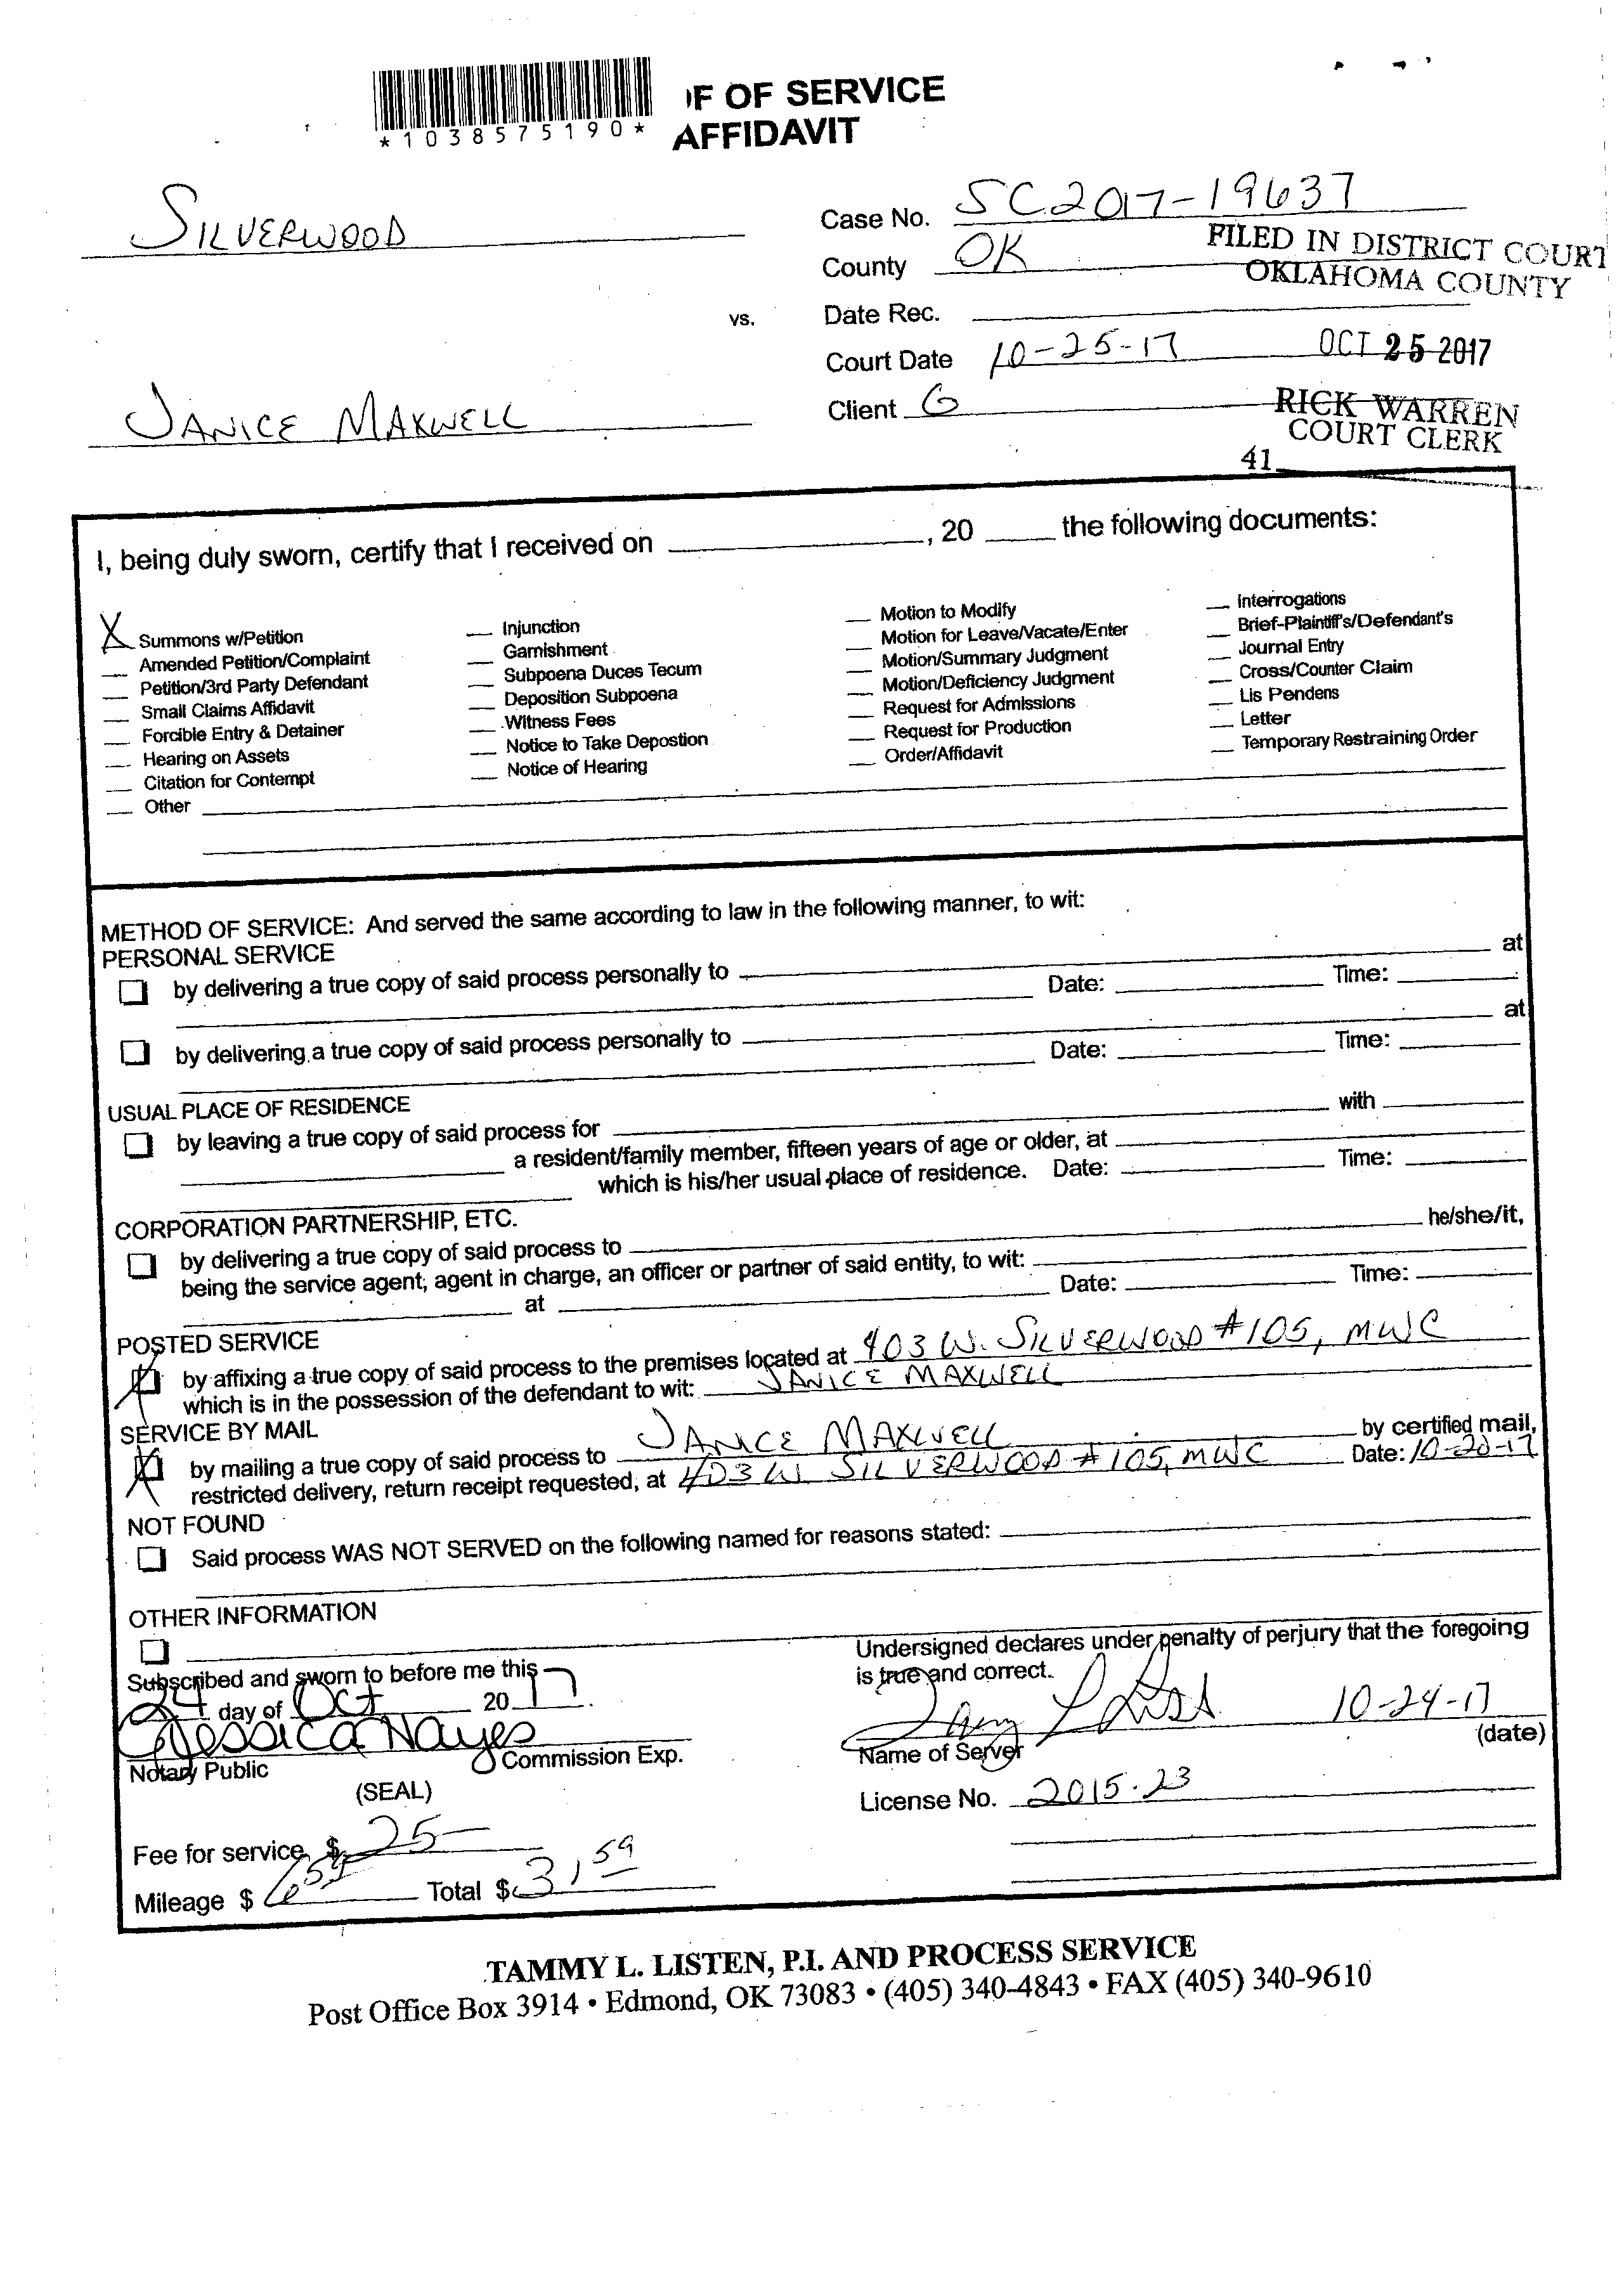 *1038575190*
F OF SERVICE
AFFIDAVIT
SILVERWOOD
Case No. SC2017-19637
County OK
FILED IN DISTRICT COURT
OKLAHOMA COUNTY
vs.
Date Rec.
Court Date 10-25-17
OCT 25 2017
JANICE MAXWELL
Client G
RICK WARREN
COURT CLERK
41
I, being duly sworn, certify that I received on ____, 20 ____ the following documents:
X Summons w/Petition
Amended Petition/Complaint
Petition/3rd Party Defendant
Small Claims Affidavit
Forcible Entry & Detainer
Hearing on Assets
Citation for Contempt
Other
Injunction
Garnishment
Subpoena Duces Tecum
Deposition Subpoena
Witness Fees
Notice to Take Depostion
Notice of Hearing
Motion to Modify
Motion for Leave/Vacate/Enter
Motion/Summary Judgment
Motion/Deficiency Judgment
Request for Admissions
Request for Production
Order/Affidavit
Interrogations
Brief-Plaintiff's/Defendant's
Journal Entry
Cross/Counter Claim
Lis Pendens
Letter
Temporary Restraining Order
METHOD OF SERVICE: And served the same according to law in the following manner, to wit:
PERSONAL SERVICE
by delivering a true copy of said process personally to ____ at
Date: ____ Time: ____
by delivering a true copy of said process personally to ____ at
Date: ____ Time: ____
USUAL PLACE OF RESIDENCE
by leaving a true copy of said process for ____ with ____
a resident/family member, fifteen years of age or older, at ____
which is his/her usual place of residence. Date: ____ Time: ____
CORPORATION PARTNERSHIP, ETC.
by delivering a true copy of said process to ____ he/she/it,
being the service agent, agent in charge, an officer or partner of said entity, to wit: ____
at ____ Date: ____ Time: ____
POSTED SERVICE
X by affixing a true copy of said process to the premises located at 403 W. SILVERWOOD #105, MWC
which is in the possession of the defendant to wit: JANICE MAXWELL
SERVICE BY MAIL
X by mailing a true copy of said process to JANICE MAXWELL by certified mail,
restricted delivery, return receipt requested, at 403 W SILVERWOOD #105, MWC Date: 10-20-17
NOT FOUND
Said process WAS NOT SERVED on the following named for reasons stated:
OTHER INFORMATION
Subscribed and sworn to before me this
24 day of Oct 20 17.
Jessica Nayes
Notary Public Commission Exp.
(SEAL)
Undersigned declares under penalty of perjury that the foregoing
is true and correct.
10-24-17
Name of Server (date)
License No. 2015-23
Fee for service $ 25—
Mileage $ 6 59 Total $ 31 59
TAMMY L. LISTEN, P.I. AND PROCESS SERVICE
Post Office Box 3914 • Edmond, OK 73083 • (405) 340-4843 • FAX (405) 340-9610